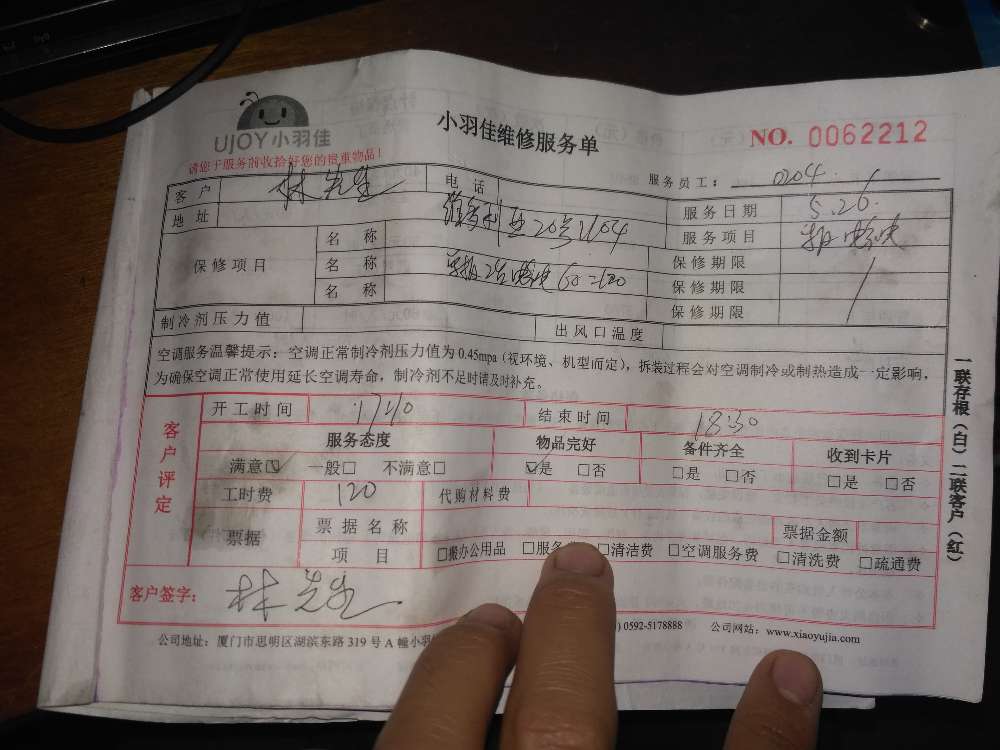 UJOY小羽佳
小羽佳维修服务单
NO. 0062212
请您于服务前收拾好您的贵重物品!
服务员工: 0204
客户 林先生 电话
服务日期 5.26.
地址 20号2604
服务项目
保修项目 名称 保修期限
名称 60=120 保修期限
名称 保修期限
制冷剂压力值 出风口温度
空调服务温馨提示: 空调正常制冷剂压力值为0.45mpa (视环境、机型而定), 拆装过程会对空调制冷或制热造成一定影响,
为确保空调正常使用延长空调寿命, 制冷剂不足时请及时补充。
客户评定
开工时间 17:10 结束时间 18:30
服务态度 物品完好 备件齐全 收到卡片
满意☑ 一般□ 不满意□ ☑是 □否 □是 □否 □是 □否
工时费 120 代购材料费
票据 票据名称 票据金额
项目 □搬办公用品 □服务费 □清洁费 □空调服务费 □清洗费 □疏通费
客户签字: 林先生
公司地址: 厦门市思明区湖滨东路319号A幢小羽 0592-5178888 公司网站: www.xiaoyujia.com
一联存根(白)二联客户(红)